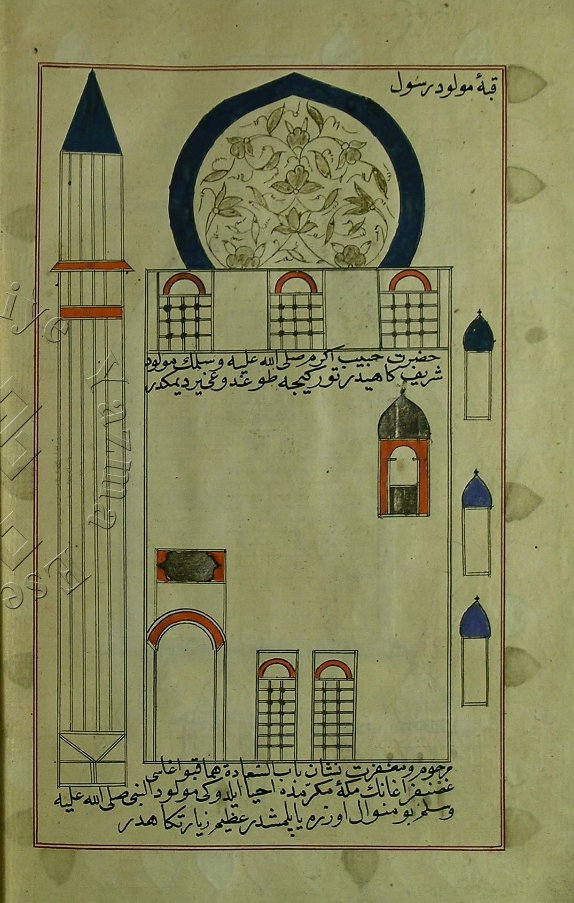 قبۀ مولود رسول
حضرت حبیب اکرم صلی الله علیه وسلمك مولود
شریف کاهیدر تورکیجه طوغدوغی یر دیمکدر
مرحوم ومغفرت نشان باب السعادة هما قپو اغاسی
غضنفر اغانك مکۀ مکرمده احیا ایلدوکی مولود النبی صلی الله علیه
وسلم بو منوال اوزره یاپلمشدر عظیم زیارتکاهدر
Yazma